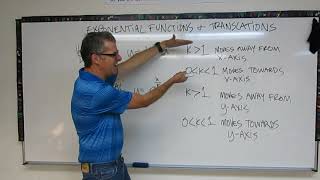 EXPONENTIAL FUNCTIONS & TRANSLATIONS
K>1 MOVES AWAY FROM
X-AXIS
0<K<1 MOVES TOWARDS
X-AXIS
K>1 MOVES AWAY FROM
y-AXIS
0<K<1 MOVES TOWARDS
y-AXIS